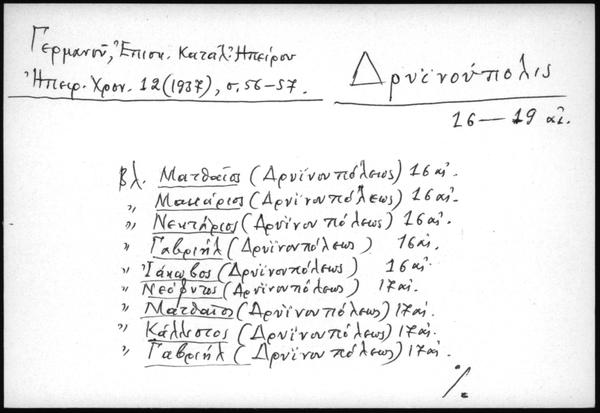 Γερμανοῦ, Ἐπισκ. Καταλ. Ἠπείρου
Ἠπειρ. Χρον. 12 (1937), σ. 56-57.
Δρυϊνούπολις
16-19 αἰ.
βλ. Ματθαῖος (Δρυϊνουπόλεως) 16 αἰ.
„ Μακάριος (Δρυϊνουπόλεως) 16 αἰ.
„ Νεκτάριος (Δρυϊνουπόλεως) 16 αἰ.
„ Γαβριήλ (Δρυϊνουπόλεως) 16 αἰ.
„ Ἰάκωβος (Δρυϊνουπόλεως) 16 αἰ.
„ Νεόφυτος (Δρυϊνουπόλεως) 17 αἰ.
„ Ματθαῖος (Δρυϊνουπόλεως) 17 αἰ.
„ Κάλλιστος (Δρυϊνουπόλεως) 17 αἰ.
„ Γαβριήλ (Δρυϊνουπόλεως) 17 αἰ.
./.